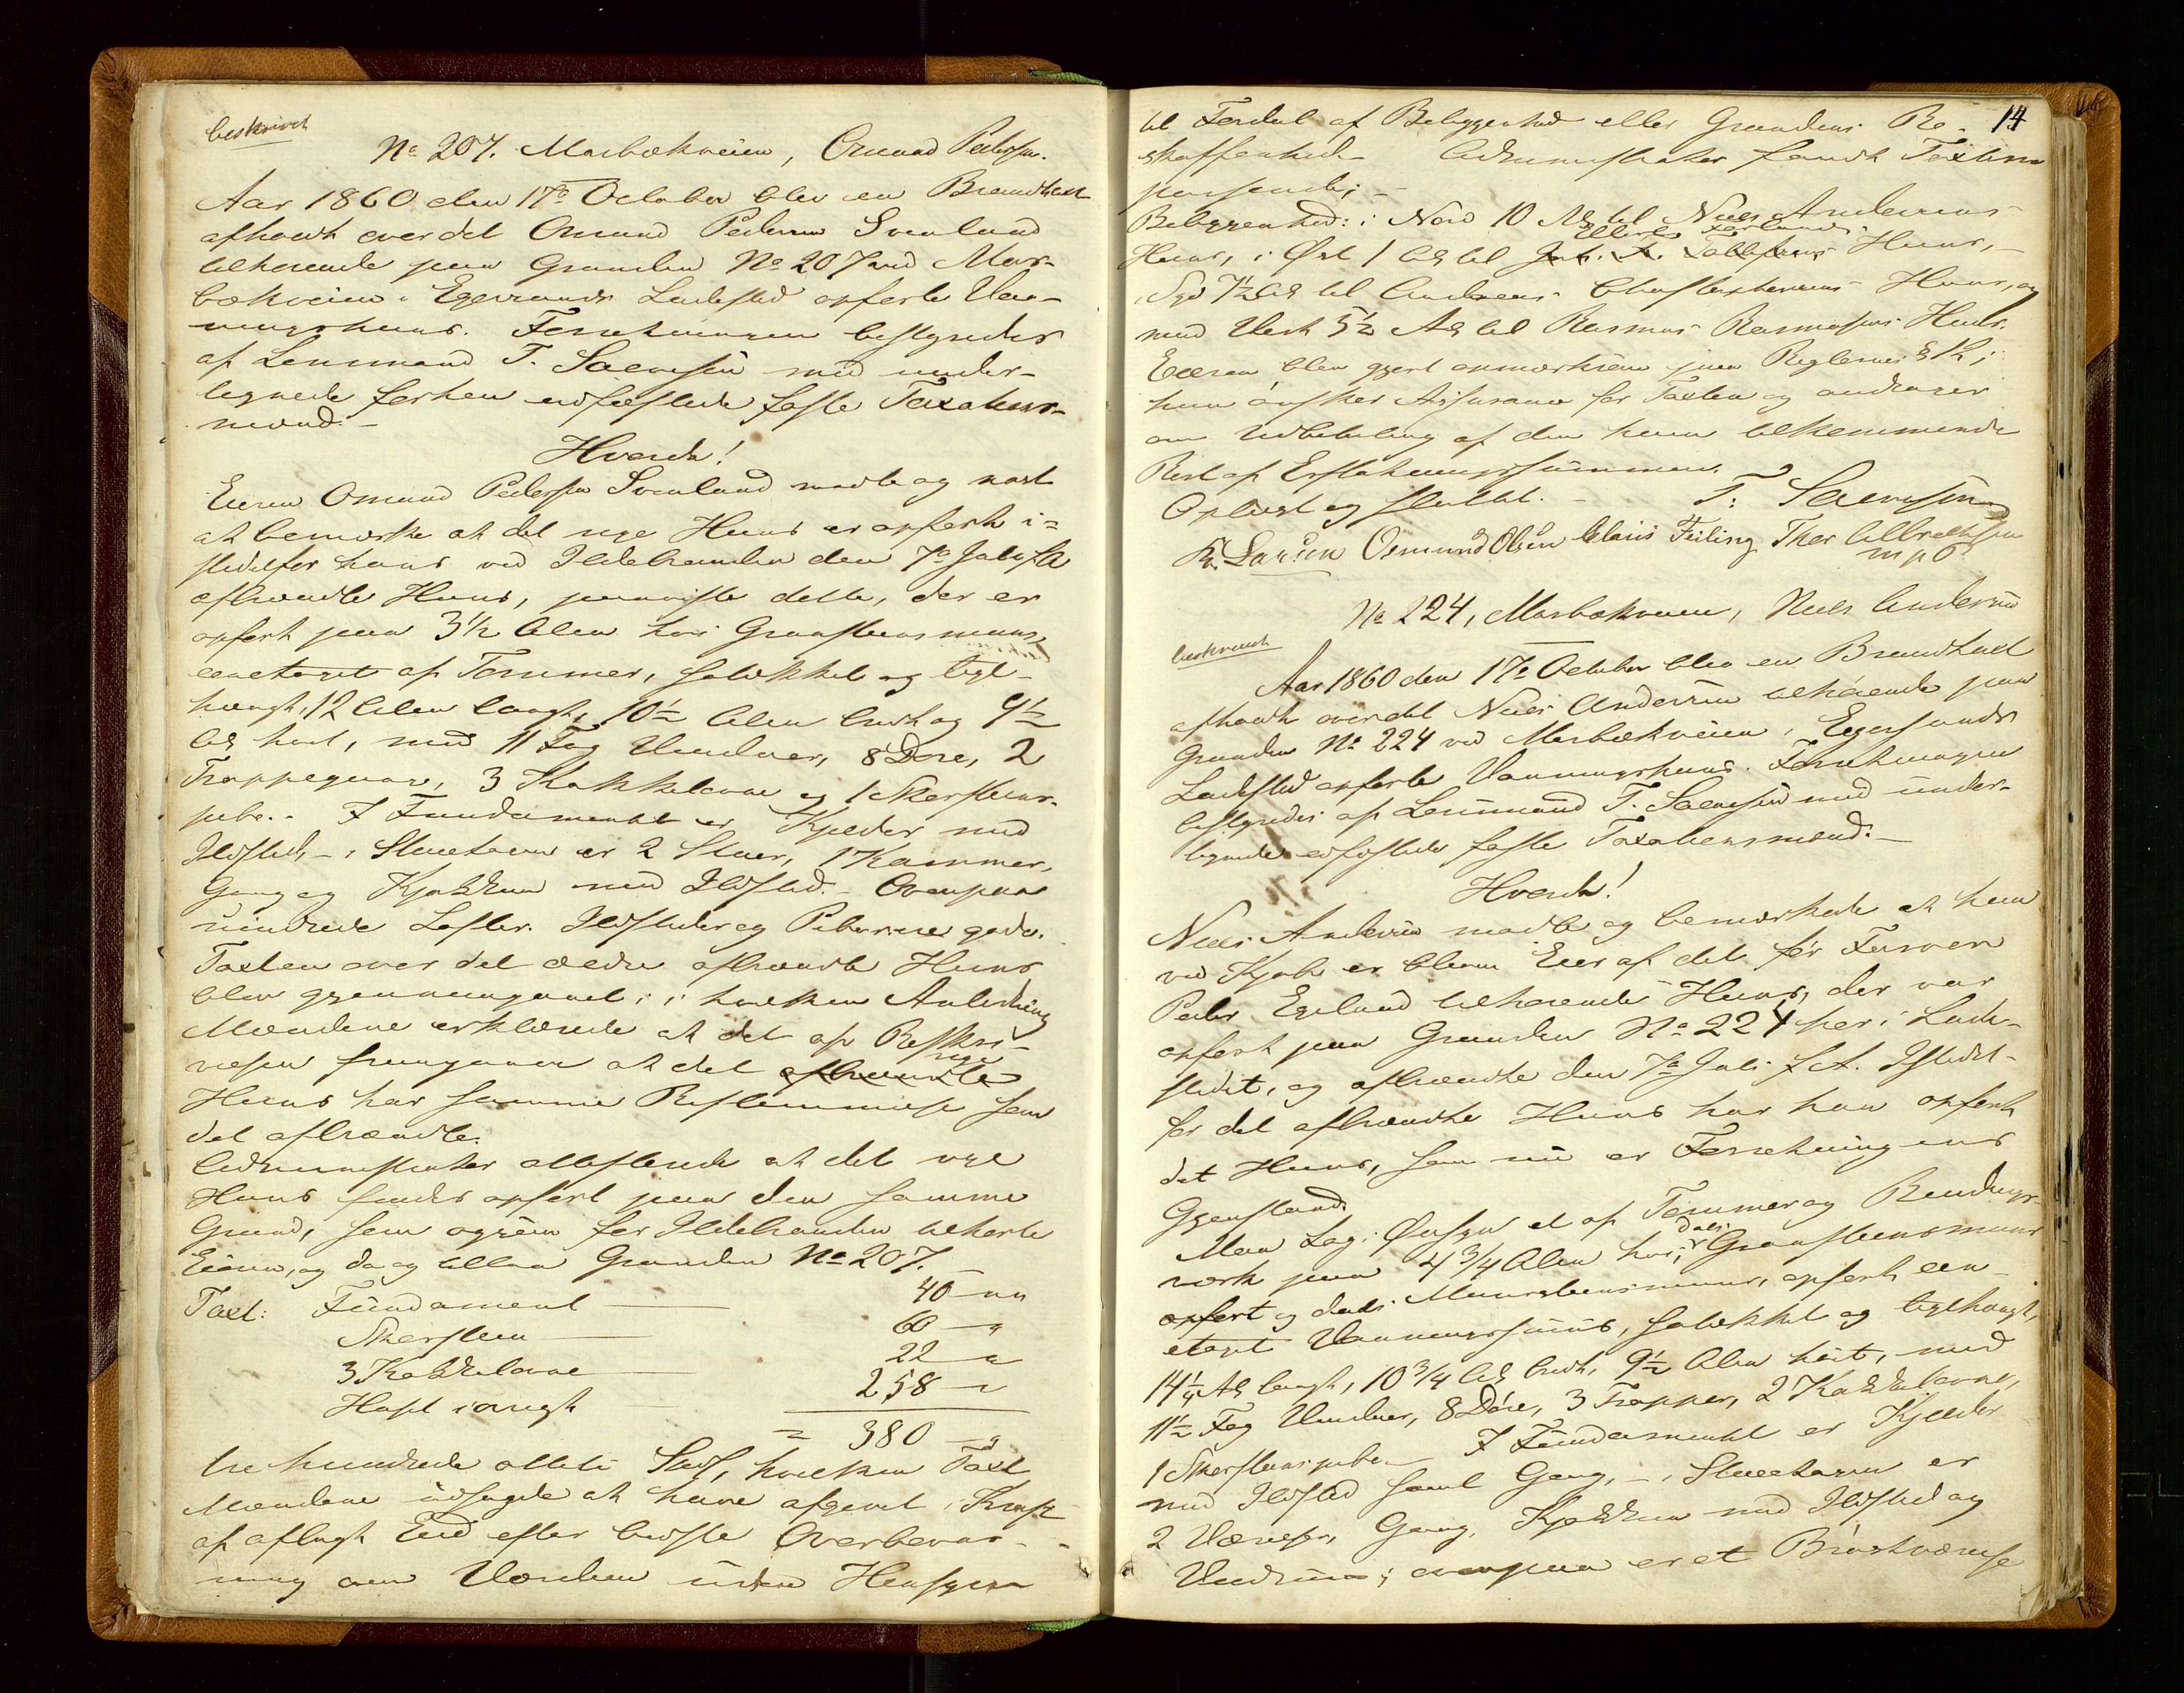 beskrivet
No 207. Mosbækveien, Omund Pedersen.
Aar 1860 den 17de October blev en Brandtaxt
afholdt over det Omund Pedersen Svenland
tilhørende paa Grunden No 207 ved Mos-
bækveien i Egersunds Ladested opførte Vaa-
ningshuus. Forretningen bestyredes
af Lensmand T. Svensen med under-
tegnede forhen edfæstede faste Taxations-
mænd.
Hvorda!
Eieren Omund Pedersen Svenland mødte og
at bemærke at det nye Huus er opført i-
stedetfor hans ved Ildebranden den 7de Juli f A
afbrændte Huus, paaviste dette, der er
opført paa 3 1/2 Alen høi Graasteensmuur,
eenetaget af Tømmer, bordklædt og tegl-
hængt, 12 Alen langt, 10 1/2 Alen bredt og 9 1/2
Al høit, med 11 Fag Vinduer, 8 Døre, 2
Trappegange, 3 Kakkelovne og 1 Skorsteens-
pibe. I Fundamentet er Kjelder med
Ildsted, i Stueetagen er 2 Stuer, 1 Kammer,
Gang og Kjøkken med Ildsted. Ovenpaa
uindrede Lofter. Ildsteder og Piberne gode.
Taxten over det ældre afbrændte Huus
blev gjennemgaaet; i hvilken Anledning
Mændene erklærede at det af Beskri-
velsen fremgaaer at det afbrændte nye
Huus har samme Bestemmelse som
det afbrændte.
Administrator attesterede at det nye
Huus findes opført paa den samme
Grund, som ogsaa før Ildebranden tilhørte
Eieren, og da og tillaa Grunden No 207.
Taxt: Fundament 40 "
Skorsteen 60 "
3 Kakkelovne 22 "
Huset iøvrigt 258 "
= 380 "
tre hundrede otteti Spd, hvilken Taxt
Mændene udsagde at have afgivet i Kraft
af aflagt Eed efter bedste Overbeviis-
ning om Værdien uden Hensyn
14
til Fordeel af Beliggenhed eller Grundens Be-
skaffenhed. Administrator fandt Taxten
passende;
Beliggenhed: i Nord 10 Al til Niels Andersens
Huus, i Øst 1 Al til Huus,
Syd 7 1/2 Al til Andreas Christophersens Huus, og
mod Vest 5 1/2 Al til Rasmus Rasmussens Huus.
Eieren blev gjort opmærksom paa Reglernes § 12;
han ønsker Assurance for Taxten og andrager
om Udbetaling af den ham tilkommende
Rest af Erstatningssummen.
Oplæst og sluttet. T. Svensen
R. Larsen Osmund Olsen Claus Feiling Thor Albrethsen
m p P
No 224, Mosbækveien, Niels Andersen
beskrevet
Aar 1860 den 17de October blev en Brandtaxt
afholdt over det Niels Andersen tilhørende paa
Grunden No 224 ved Mosbækveien i Egersunds
Ladested opførte Vaaningshuus. Forretningen
bestyredes af Lensmand T. Svensen med under-
tegnede edfæstede faste Taxationsmænd.
Hvorda!
Niels Andersen mødte og bemærkede at han
ved Kjøb er bleven Eier af det før Farver
Peder Egeland tilhørende Huus, der var
opført paa Grunden No 224 her i Lade-
stedet, og afbrændte den 7de Juli f A. Istedet-
for det afbrændte Huus har han opført
det Huus, som nu er Forretningens
Gjenstand.
Man tog i Øiesyn et af Tømmer og Bindings-
værk paa 4 3/4 Alen høi, deels Graasteensmuur
opført og deels Muursteensmuur, opført een-
etaget Vaaningshuus, bordklædt og teglhængt,
14 1/4 Al langt, 10 3/4 Al bredt, 9 1/2 Alen høit, med
11 1/2 Fag Vinduer, 8 Døre, 3 Trapper, 2 Kakkelovne,
1 Skorsteenspibe. I Fundamentet er Kjelder
med Ildsted samt Gang, i Stueetagen er
2 Værelser, Gang, Kjøkken med Ildsted og
; ovenpaa er et Brøstværelse